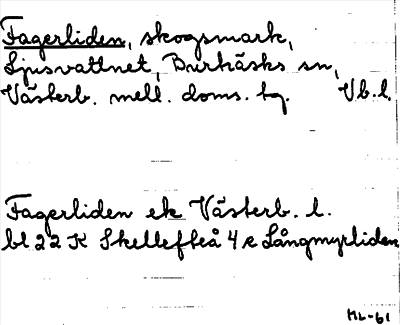 Fagerliden, skogsmark,
Ljusvattnet, Burkäsks sn,
Västerb. mell. doms. tg. Vb. l.
Fagerliden ek Västerb. l.
bl 22 K Skellefteå 4 e Långmyrliden
HL-61